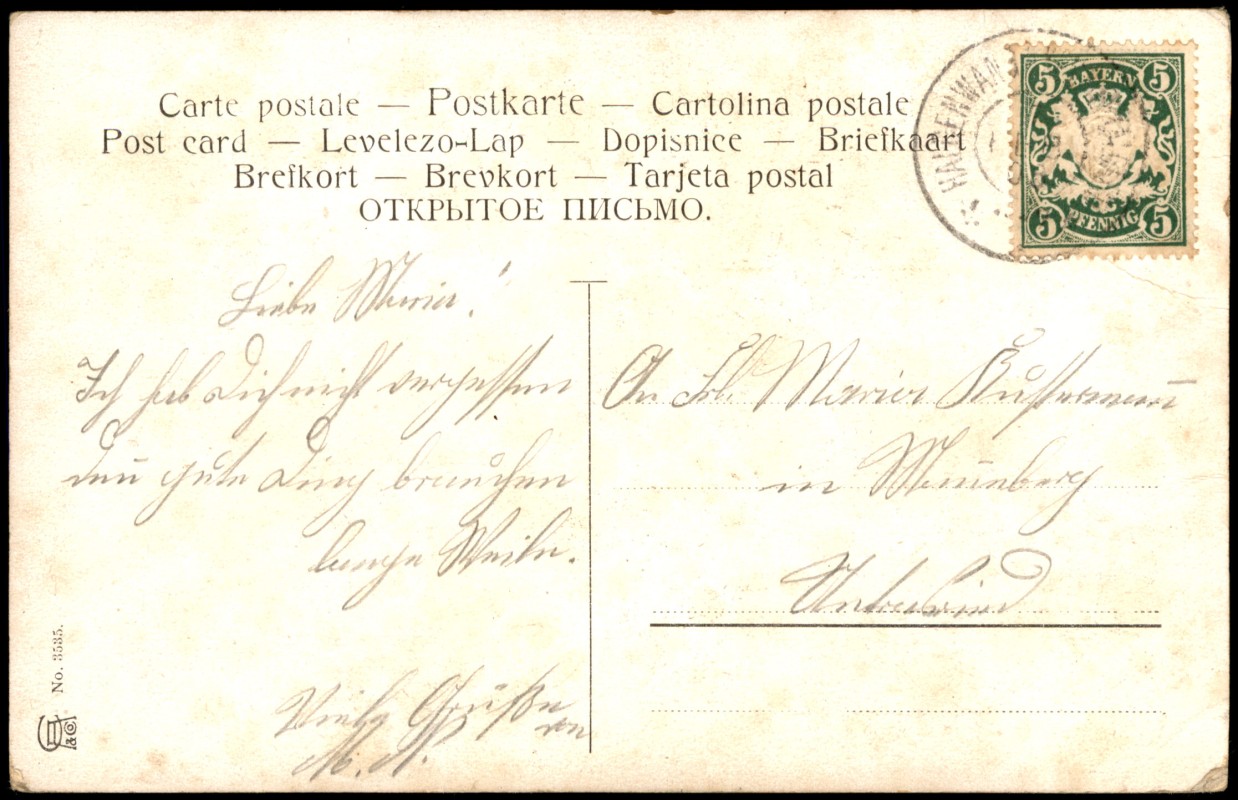 Carte postale — Postkarte — Cartolina postale
Post card — Levelezo-Lap — Dopisnice — Briefkaart
Brefkort — Brevkort — Tarjeta postal
ОТКРЫТОЕ ПИСЬМО.
5 BAYERN 5
5 PFENNIG 5
Liebe Maria!
Ich hab Dich nicht vergessen
den gute Ding brauchen
lange Weile.
Viele Grüße
von
M. N.
An Frl. Maria
in
No. 3535.
& Co